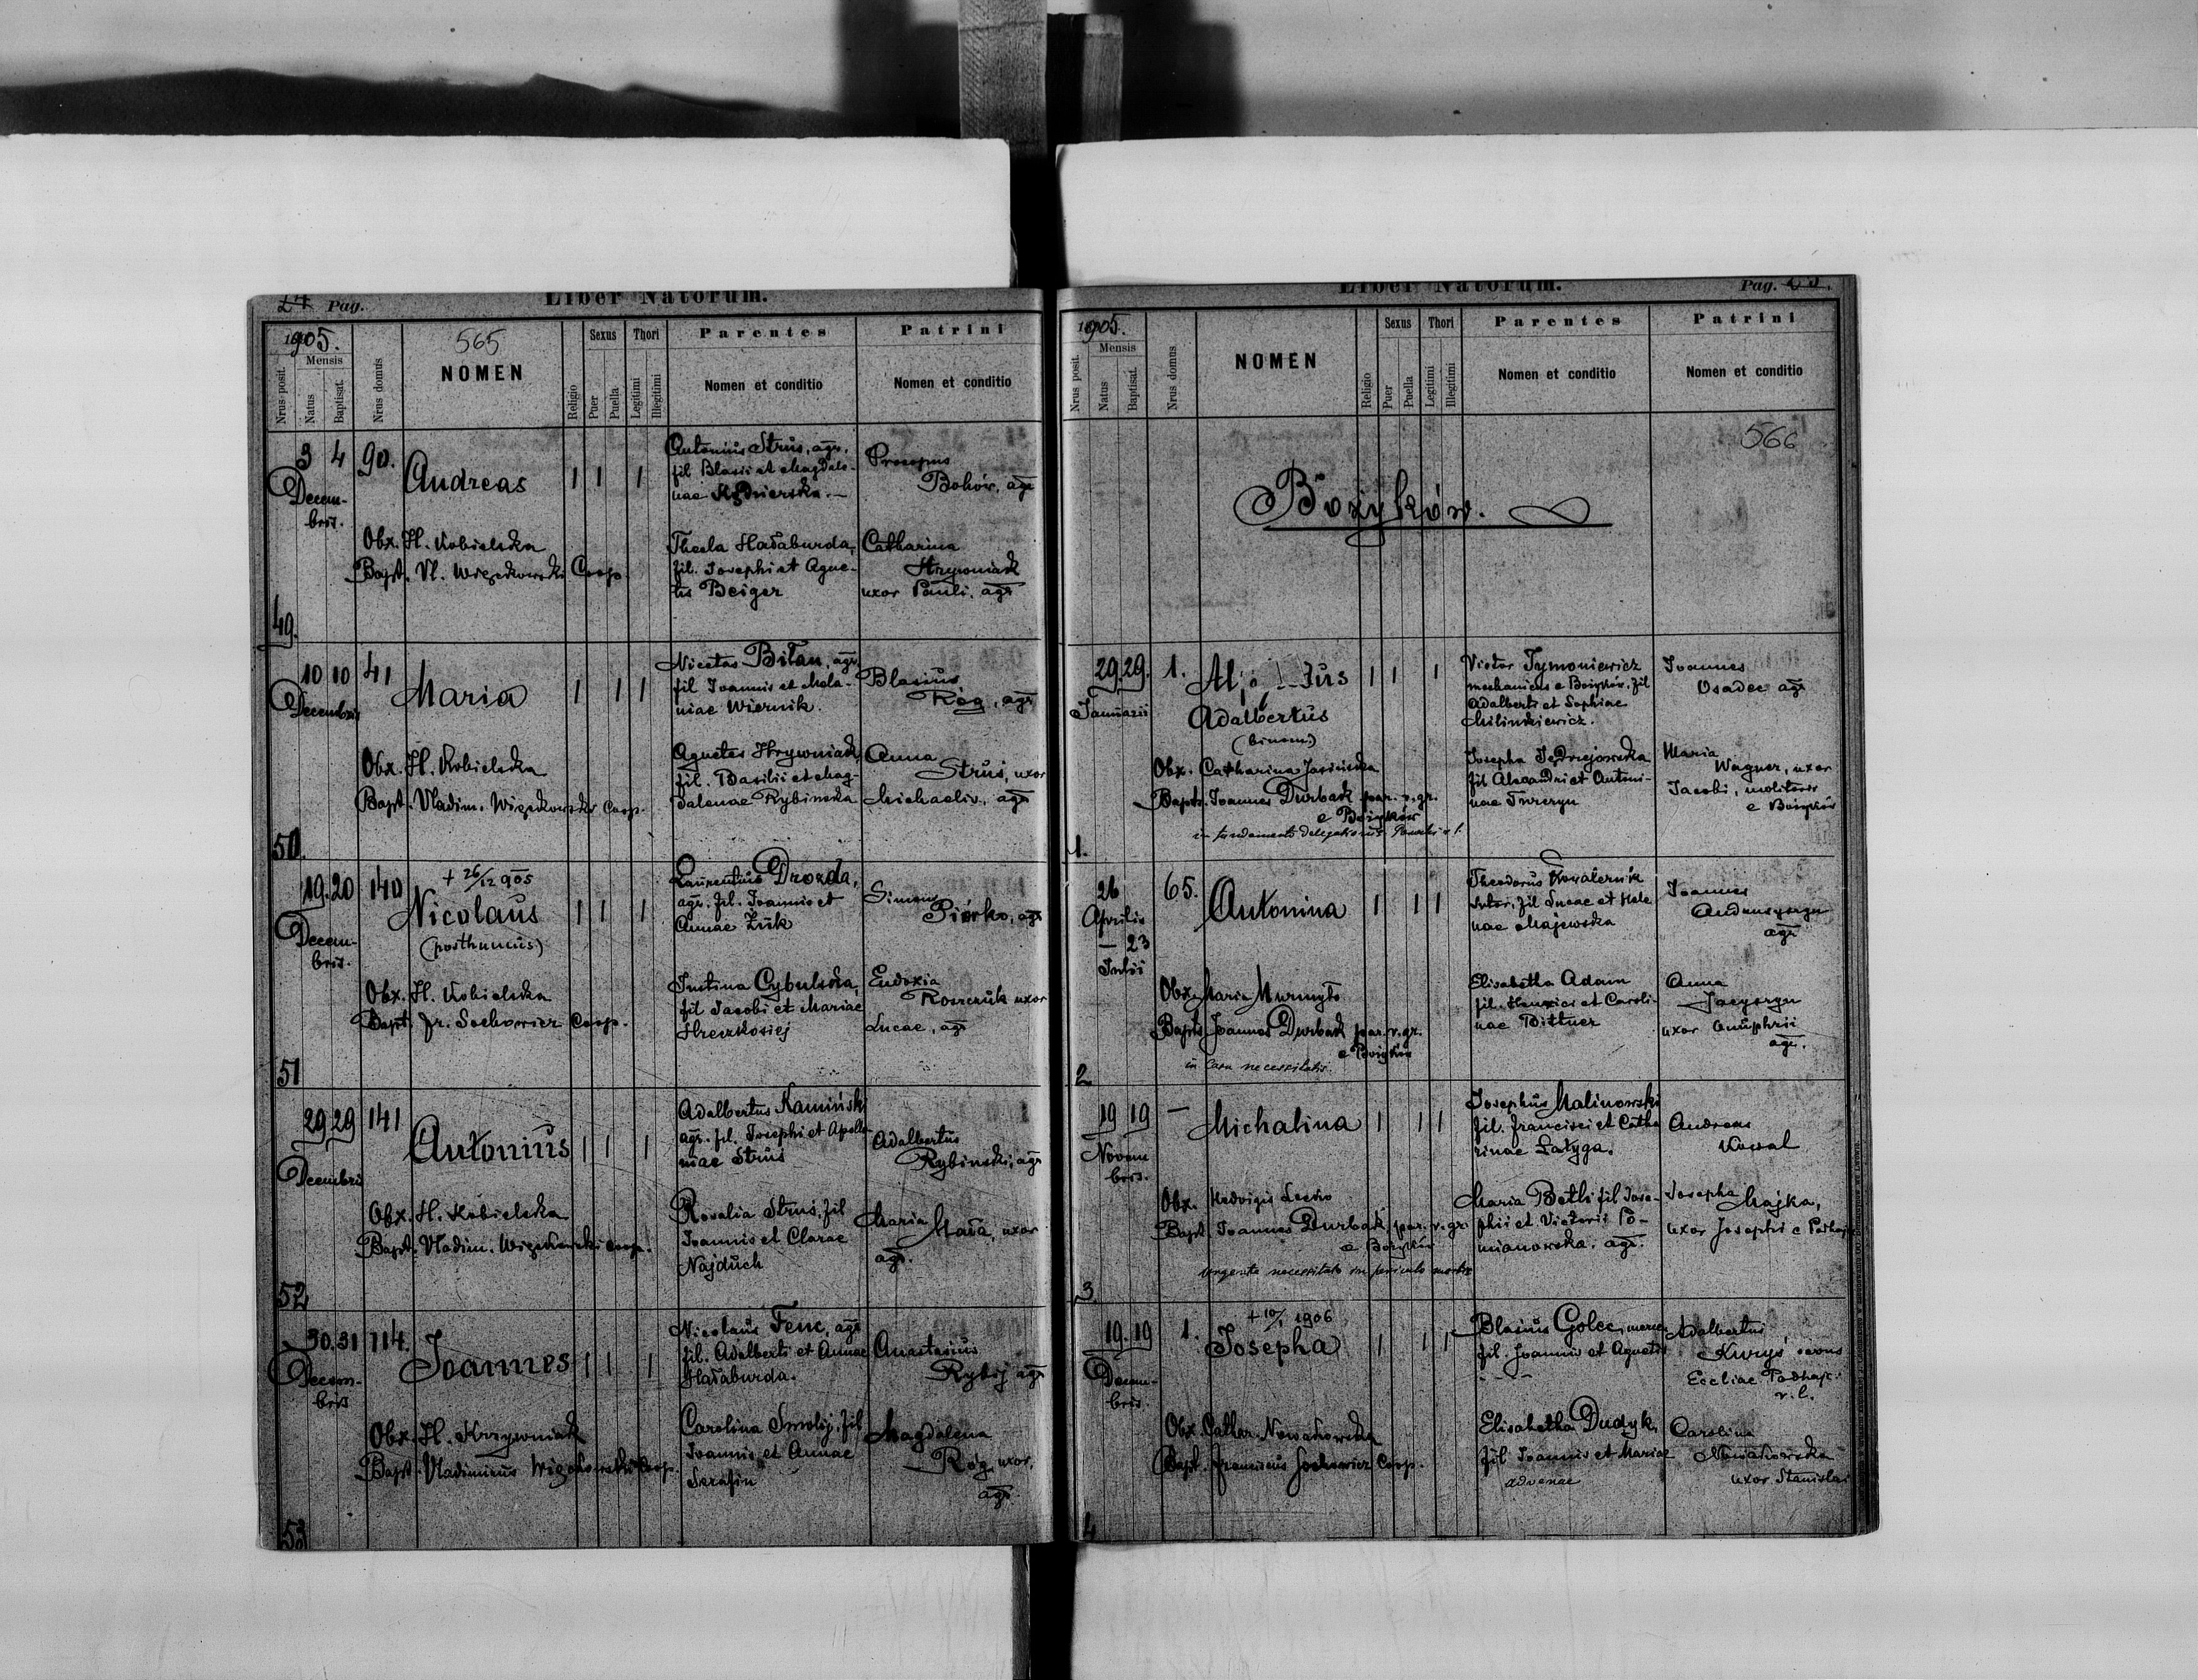 24 Pag.
Liber Natorum.
1905.
565
Nrus posit.
Mensis
Natus
Baptisat.
Nrus domus
NOMEN
Religio
Sexus
Puer
Puella
Thori
Legitimi
Illegitimi
Parentes
Nomen et conditio
Patrini
Nomen et conditio
49.
3 4 90.
Decem-
bris.
Andreas
1 1 1
Obx. H. Kobielska
Bapt. Vl. Coop.
Antonius Strus, agr.
fil Blasii et Magdale-
nae
Thecla Haťaburda,
fil. Josephi et Agne-
tis Beiger
Procopius
Bohów, agr
Catharina
Hrywniak
uxor Pauli, agr
50.
10 10 41
Decembris
Maria
1 1 1
Obx. H. Kobielska
Bapt. Vladim. Coop.
Nicetas Bitan, agr
fil Joannis et Mela-
niae Wiernik.
Agnetes Hrywniak
fil. Basilii et Mag-
dalenae Rybinska
Blasius
Róg, agr
Anna
Strus, uxor
Michaelis, agr
51
19. 20 140
Decem-
bris.
+ 26/12 905
Nicolaus
(posthumus)
1 1 1
Obx. H. Kobielska
Bapt. Fr. Sochowicz Coop.
Laurentius Drozda,
agr. fil. Joannis et
Annae Żuk
Justina Cybulska,
fil Jacobi et Mariae
Hreczkosiej
Simon
Piórko, agr
Eudoxia
uxor
Lucae, agr
52
29 29 141
Decembris
Antonius
1 1 1
Obx. H. Kobielska
Bapt. Vladim. Coop.
Adalbertus Kamiński
agr. fil. Josephi et Apollo-
niae Strus
Rosalia Strus, fil
Joannis et Clarae
Najduch
Adalbertus
Rybinski, agr
Maria
uxor
agr.
53
30. 31 114.
Decem-
bris
Joannes
1 1 1
Obx. H. Krzywniak
Bapt. Vladimirus Coop.
Nicolaus Fenc, agr
fil. Adalberti et Annae
Haťaburda.
Carolina Smolij, fil
Joannis et Annae
Serafin
Anastasius
Rybij agr
Magdalena
Róg, uxor.
agr
Liber Natorum.
Pag. 25.
1905.
Nrus posit.
Mensis
Natus
Baptisat.
Nrus domus
NOMEN
Religio
Sexus
Puer
Puella
Thori
Legitimi
Illegitimi
Parentes
Nomen et conditio
Patrini
Nomen et conditio
566
Bożyków.
1.
29. 29. 1.
Januarii
Adalbertus
(binom.)
1 1 1
Obx. Catharina Jasińska
Bapts. Joannes Durbak par. r. gr.
e Bożyków
in fundamento delegationis Parochi r. l.
Victor Tymoniewicz
mechanicus e Bożyków, fil
Adalberti et Sophiae
Milinkiewicz.
Josepha Jędrzejowska
fil Alexandri et Antoni-
nae
Joannes
Osadec agr
Maria
Wagner, uxor
Jacobi, molitoris
e Bożyków
2
26
Aprilis
— 23
Julii
65.
Antonina
1 1 1
Obx. Maria
Bapts Joannes Durbak par. r. gr.
e Bożyków
in casu necessitatis.
Theodorus Kowalernik
sutor, fil Lucae et Hele
nae Majewska
Elisabetha Adam
fil. Henrici et Caroli-
nae Bittner
Joannes
agr
Anna
uxor Onuphrii
agr.
3
19 19 —
Novem
bris.
Michalina
1 1 1
Obx. Hedvigis
Bapt. Joannes Durbak par. r. gr.
e Bożyków
urgente necessitate in periculo mortis
Josephus Malinowski
fil. Francisci et Catha
rinae Łatyga.
Maria Betls fil Jose-
phi et Victorii Po-
mianowska. agr.
Andreas
Kowal
Josepha Majka,
uxor Josephi e
4
19. 19 1.
Decem-
bris.
+ 10/1 1906
Josepha
1 1 1
Obx. Cathar. Nowakowska
Bapt. Franciscus Sochowicz Coop.
Blasius Golec,
fil. Joannis et Agnetis
- - -
Elisabetha Dudyk,
fil Joannis et Mariae
advenae
Adalbertus
Kurys,
Eccliae Podhaj.
r. l.
Carolina
Nowakowska
uxor Stanislai